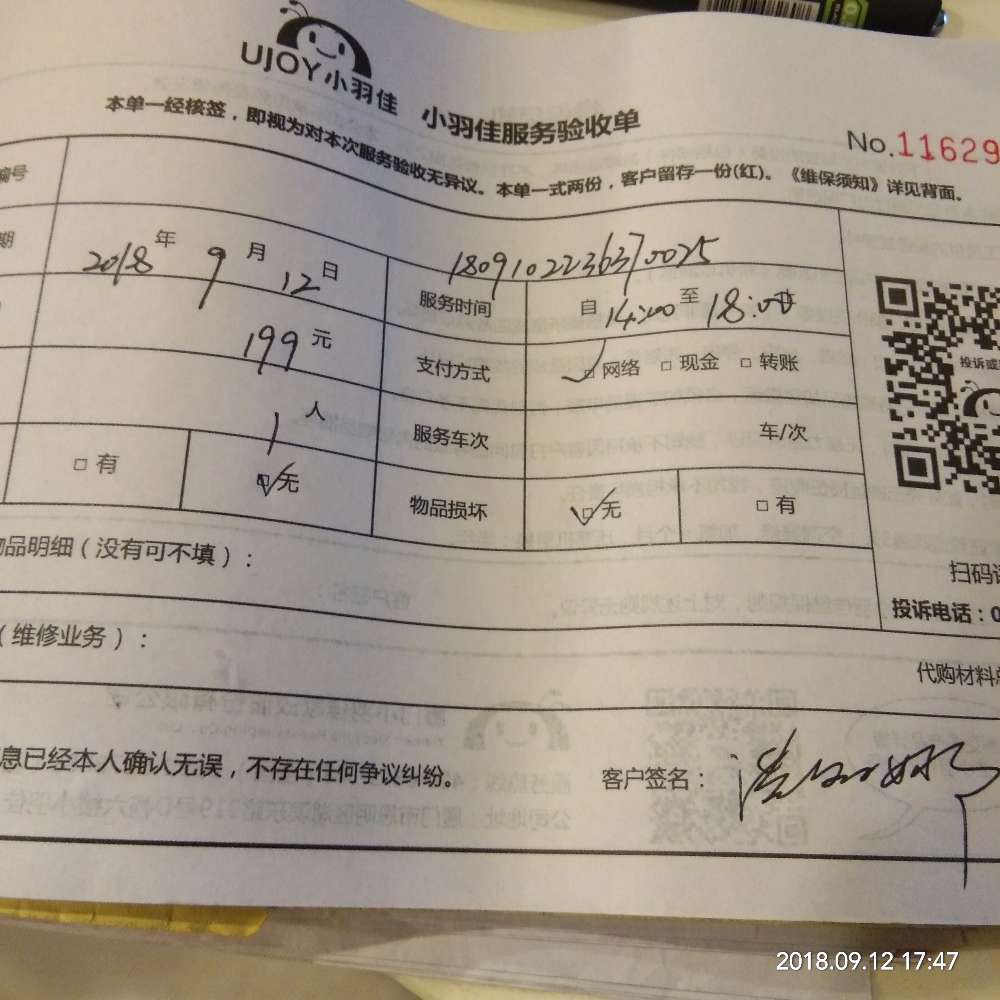 UJOY小羽佳 小羽佳服务验收单
No.11629
本单一经核签，即视为对本次服务验收无异议。本单一式两份，客户留存一份(红)。《维保须知》详见背面。
编号
1809102236370025
期 2018年9月12日 服务时间 自14:00至18:00
199元 支付方式 □网络 □现金 □转账
1人 服务车次 车/次
□有 □无 物品损坏 □无 □有
投诉或
物品明细（没有可不填）：
扫码
投诉电话：0
（维修业务）：
代购材料总
息已经本人确认无误，不存在任何争议纠纷。 客户签名：
2018.09.12 17:47